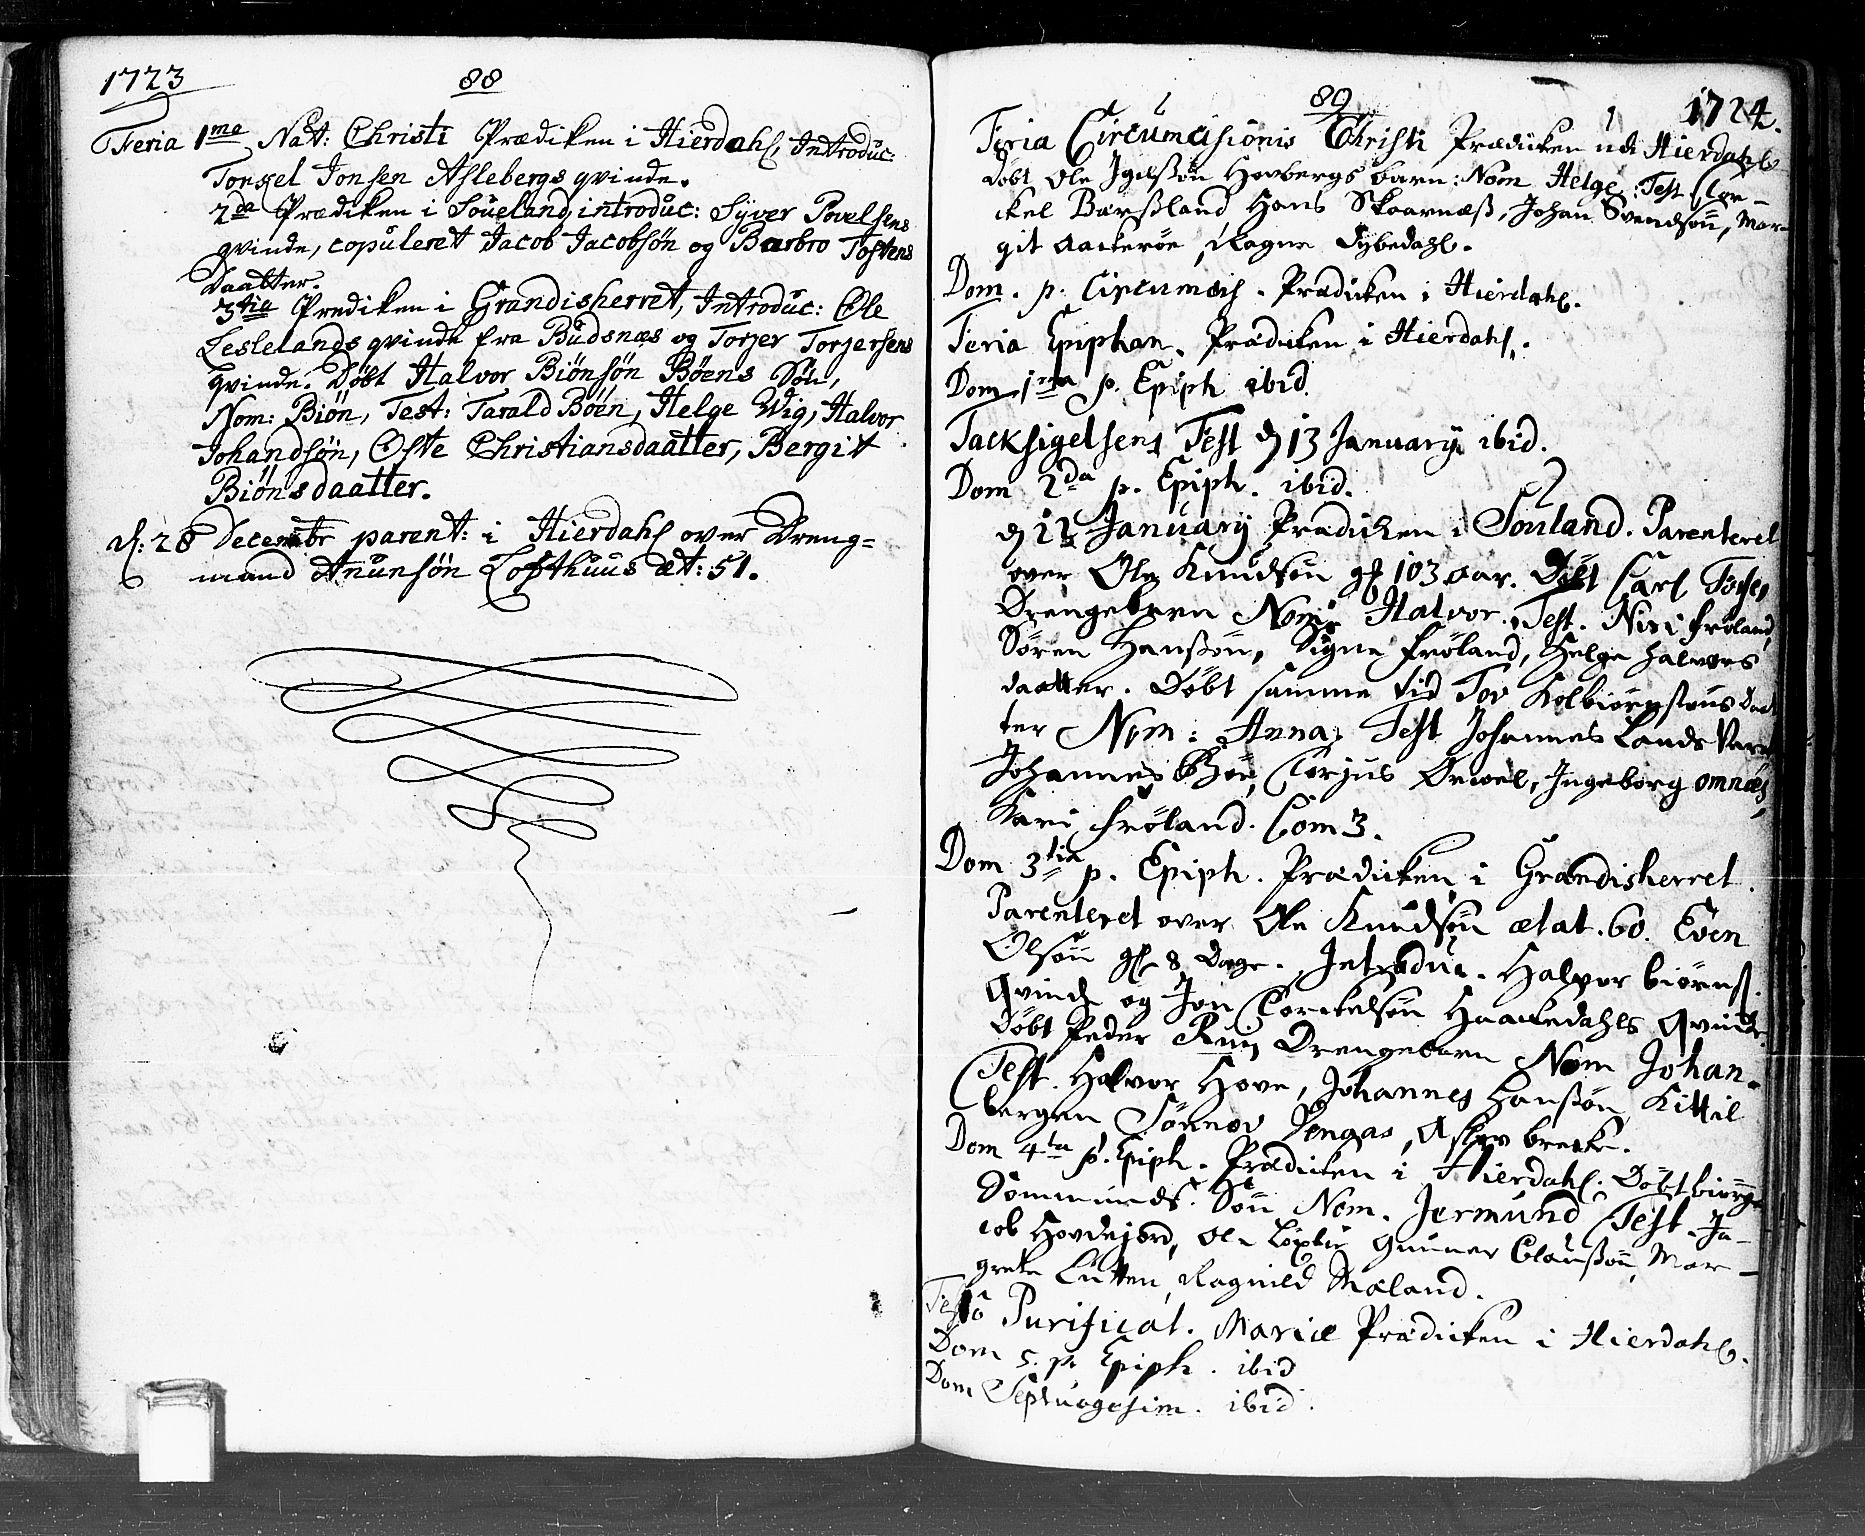 1723
88
Feria 1me Nat: Christi Prædiken i Hierdahl, Introduc:
Torgel Jonsen Aslebergs qvinde.
2da Prædiken i Soueland, introduc: Syver Povelsens
qvinde, copuleret Jacob Jacobsøn og Barbro Tostens
Daatter.
3tia Prediken i Grandisherret, Introduc: Ole
Leslelands qvinde fra Budsnæs og Torjer Torjersens
qvinde. Døbt Halvor Biønsøn Bøens Søn,
Nom: Biøn, Test: Tarald Bøen, Helge Wig, Halvor
Johandsøn, Oste Christiansdaatter, Bergit
Biønsdaatter.
d: 28 Decembr parent: i Hierdahl over Dreng=
mand Anunsøn Lofthuus æt: 51.
89
1724.
Feria Circumcisionis Christi Prædicken udi Hierdahl
Døbt Ole Barn: Nom Helge: Test Tor-
ckel Barsland Hans Skaarnæß, Johan Svendsøn, Mar-
git Aackerøe, Ragne Dybedahl.
Dom. p. Circumcis. Prædicken i Hierdahl.
Feria Epiphan. Prædicken i Hierdahl.
Dom 1ma p. Epiph ibid.
Tacksigelsens Fest d 13 January ibid.
Dom 2da p. Epiph. ibid.
d January Prædicken i Souland. Parenteret
over Ole Knudsøn gl 103 aar. Døbt Carl
Drengebarn Nom: Halvor. Test. Niri Frøland,
Sören Hanßøn, Signe Frøland, Helge Halvors
daatter. Døbt samme tid Tov Kolbiørnsøns Daat
ter Nom: Anna; Test Johannes Landsvar
Johannes Bøe, Torjus Ørvel, Ingeborg Omnæs,
Kari Frøland. Com 3.
Dom 3tia p. Epiph. Prædicken i Grandisherret.
Parenteret over Ole Knudsøn ætat. 60. Even
Olsøn gl 8 Dage. Introduc. Halvor Biørns.
Qvinde og Jon Torckelsøn Haackedahls Qvinde.
Døbt Peder Ruij Drengebarn Nom Johan.
Test. Halvor Hove, Johannes Hanßøn, Kittil
bergen Sønnov Jengas, Aslov brecke.
Dom 4ta p. Epiph. Prædicken i Hierdahl. Døbt
Sommunds. Søn Nom. Jermund Test. Ja-
cob Hovdejord, Ole Gunner Olaußøn, Mar-
grete Lutten, Ragnild Mæland.
Festo Purificat. Mariæ Prædicken i Hierdahl.
Dom 5. p. Epiph. ibid
Dom Septuagesim. ibid.